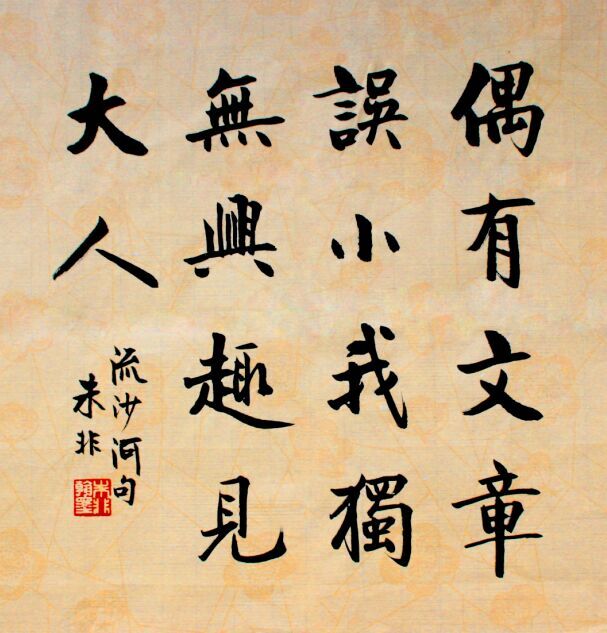 偶有文章
誤小我獨
無興趣見
大人
流沙河句
朱非
朱非翰墨